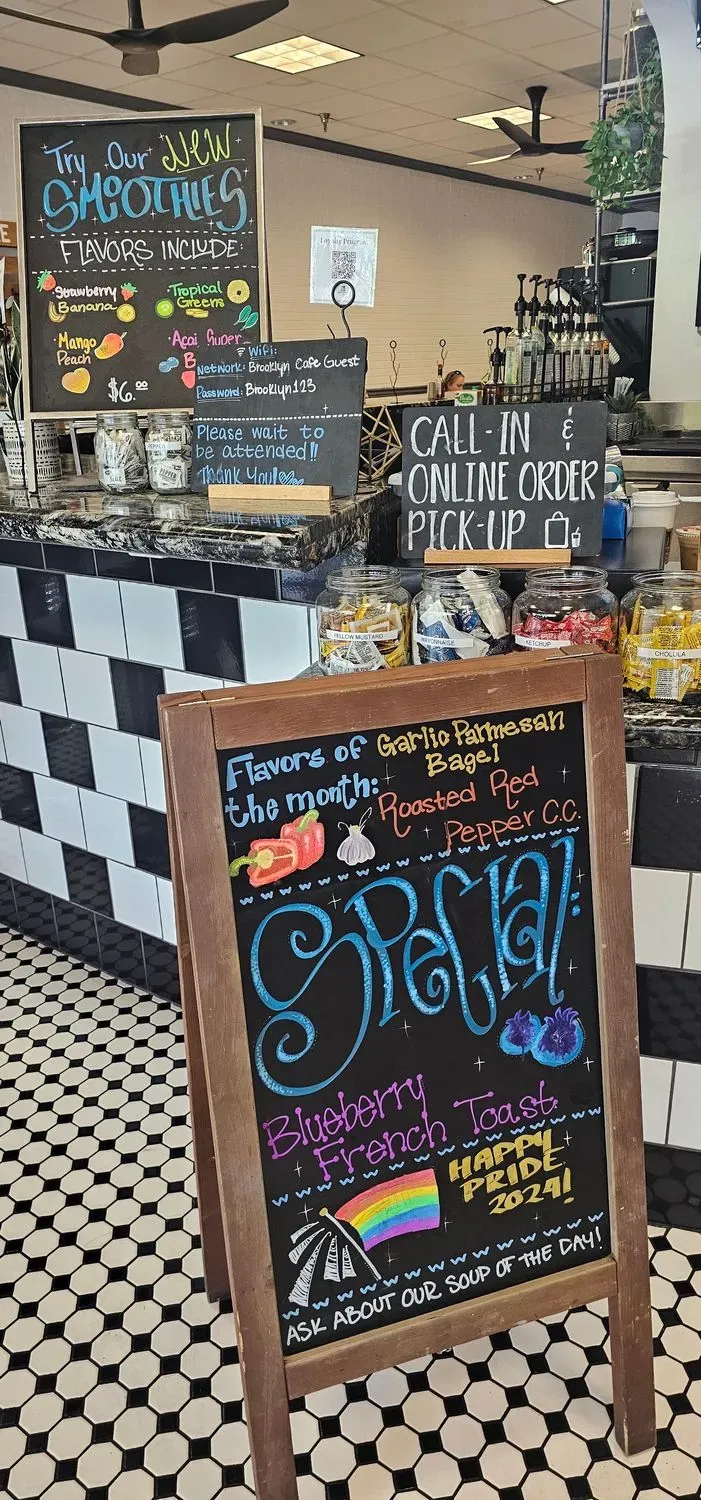 Try Our NEW
SMOOTHIES
FLAVORS INCLUDE:
Strawberry
Banana
Tropical
Greens
Mango
Peach
Acai Super
B
$6.00
Loyalty Program
WiFi:
Network: Brooklyn Cafe Guest
Password: Brooklyn123
Please wait to
be attended!!
Thank You!
CALL-IN &
ONLINE ORDER
PICK-UP
YELLOW MUSTARD
MAYONNAISE
KETCHUP
CHOLULA
Flavors of
the month:
Garlic Parmesan
Bagel
Roasted Red
Pepper C.C.
Special:
Blueberry
French Toast
HAPPY
PRIDE
2024!
ASK ABOUT OUR SOUP OF THE DAY!